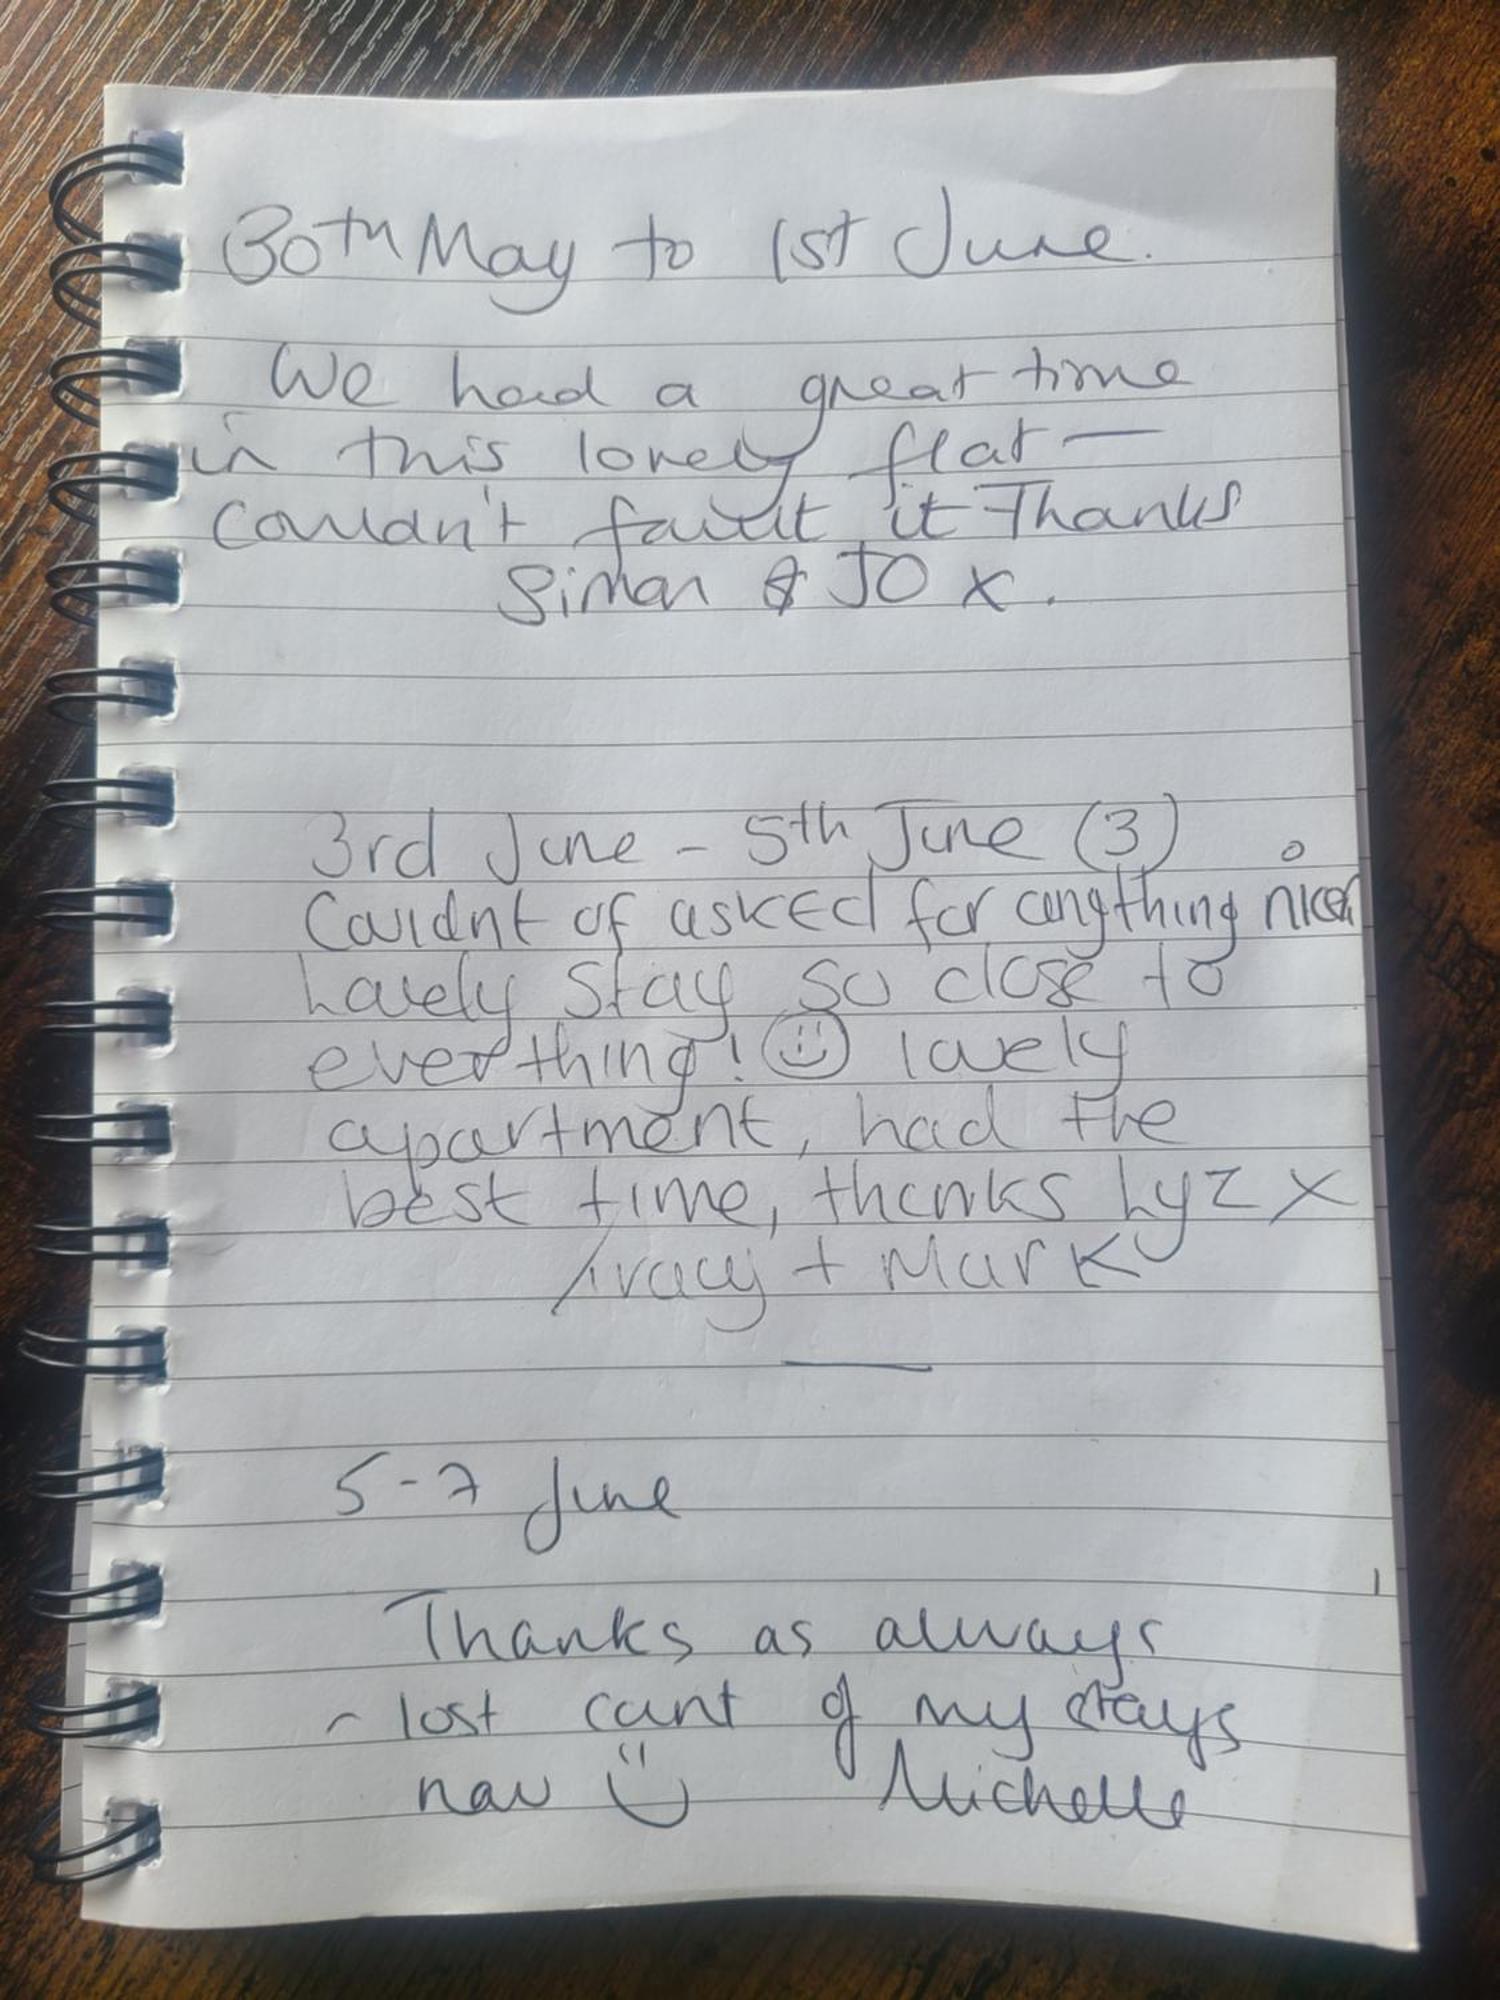 30th May to 1st June.
We had a great time
in this lovely flat —
couldn't fault it Thanks
Simon & JO x.
3rd June - 5th June (3)
Couldnt of asked for anything nicer
Lovely stay so close to
everything! ☺ lovely
apartment, had the
best time, thanks Lyz x
Tracy + Mark
5-7 June
Thanks as always
- lost count of my stays
now ☺ Michelle